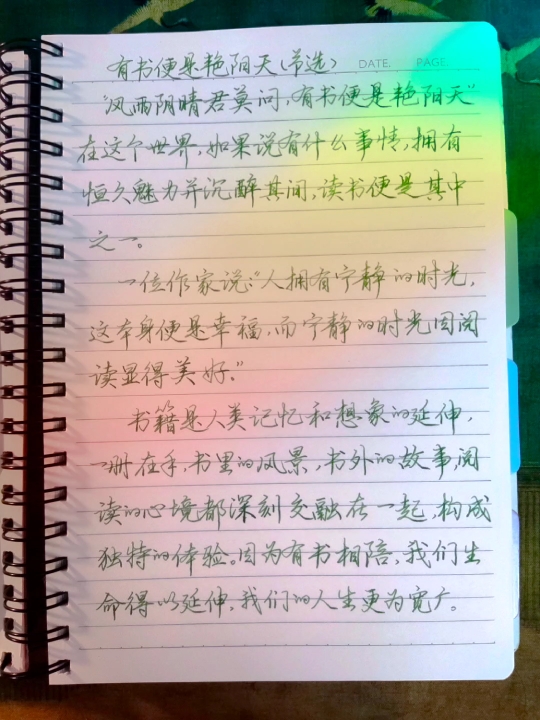 有书便是艳阳天(节选)
DATE. PAGE.
“风雨阴晴君莫问,有书便是艳阳天”
在这个世界,如果说有什么事情,拥有
恒久魅力并沉醉其间,读书便是其中
之一。
一位作家说:“人拥有宁静的时光,
这本身便是幸福,而宁静的时光因阅
读显得美好。”
书籍是人类记忆和想象的延伸,
一册在手,书里的风景,书外的故事,阅
读的心境都深刻交融在一起,构成
独特的体验。因为有书相陪,我们生
命得以延伸,我们的人生更为宽广。